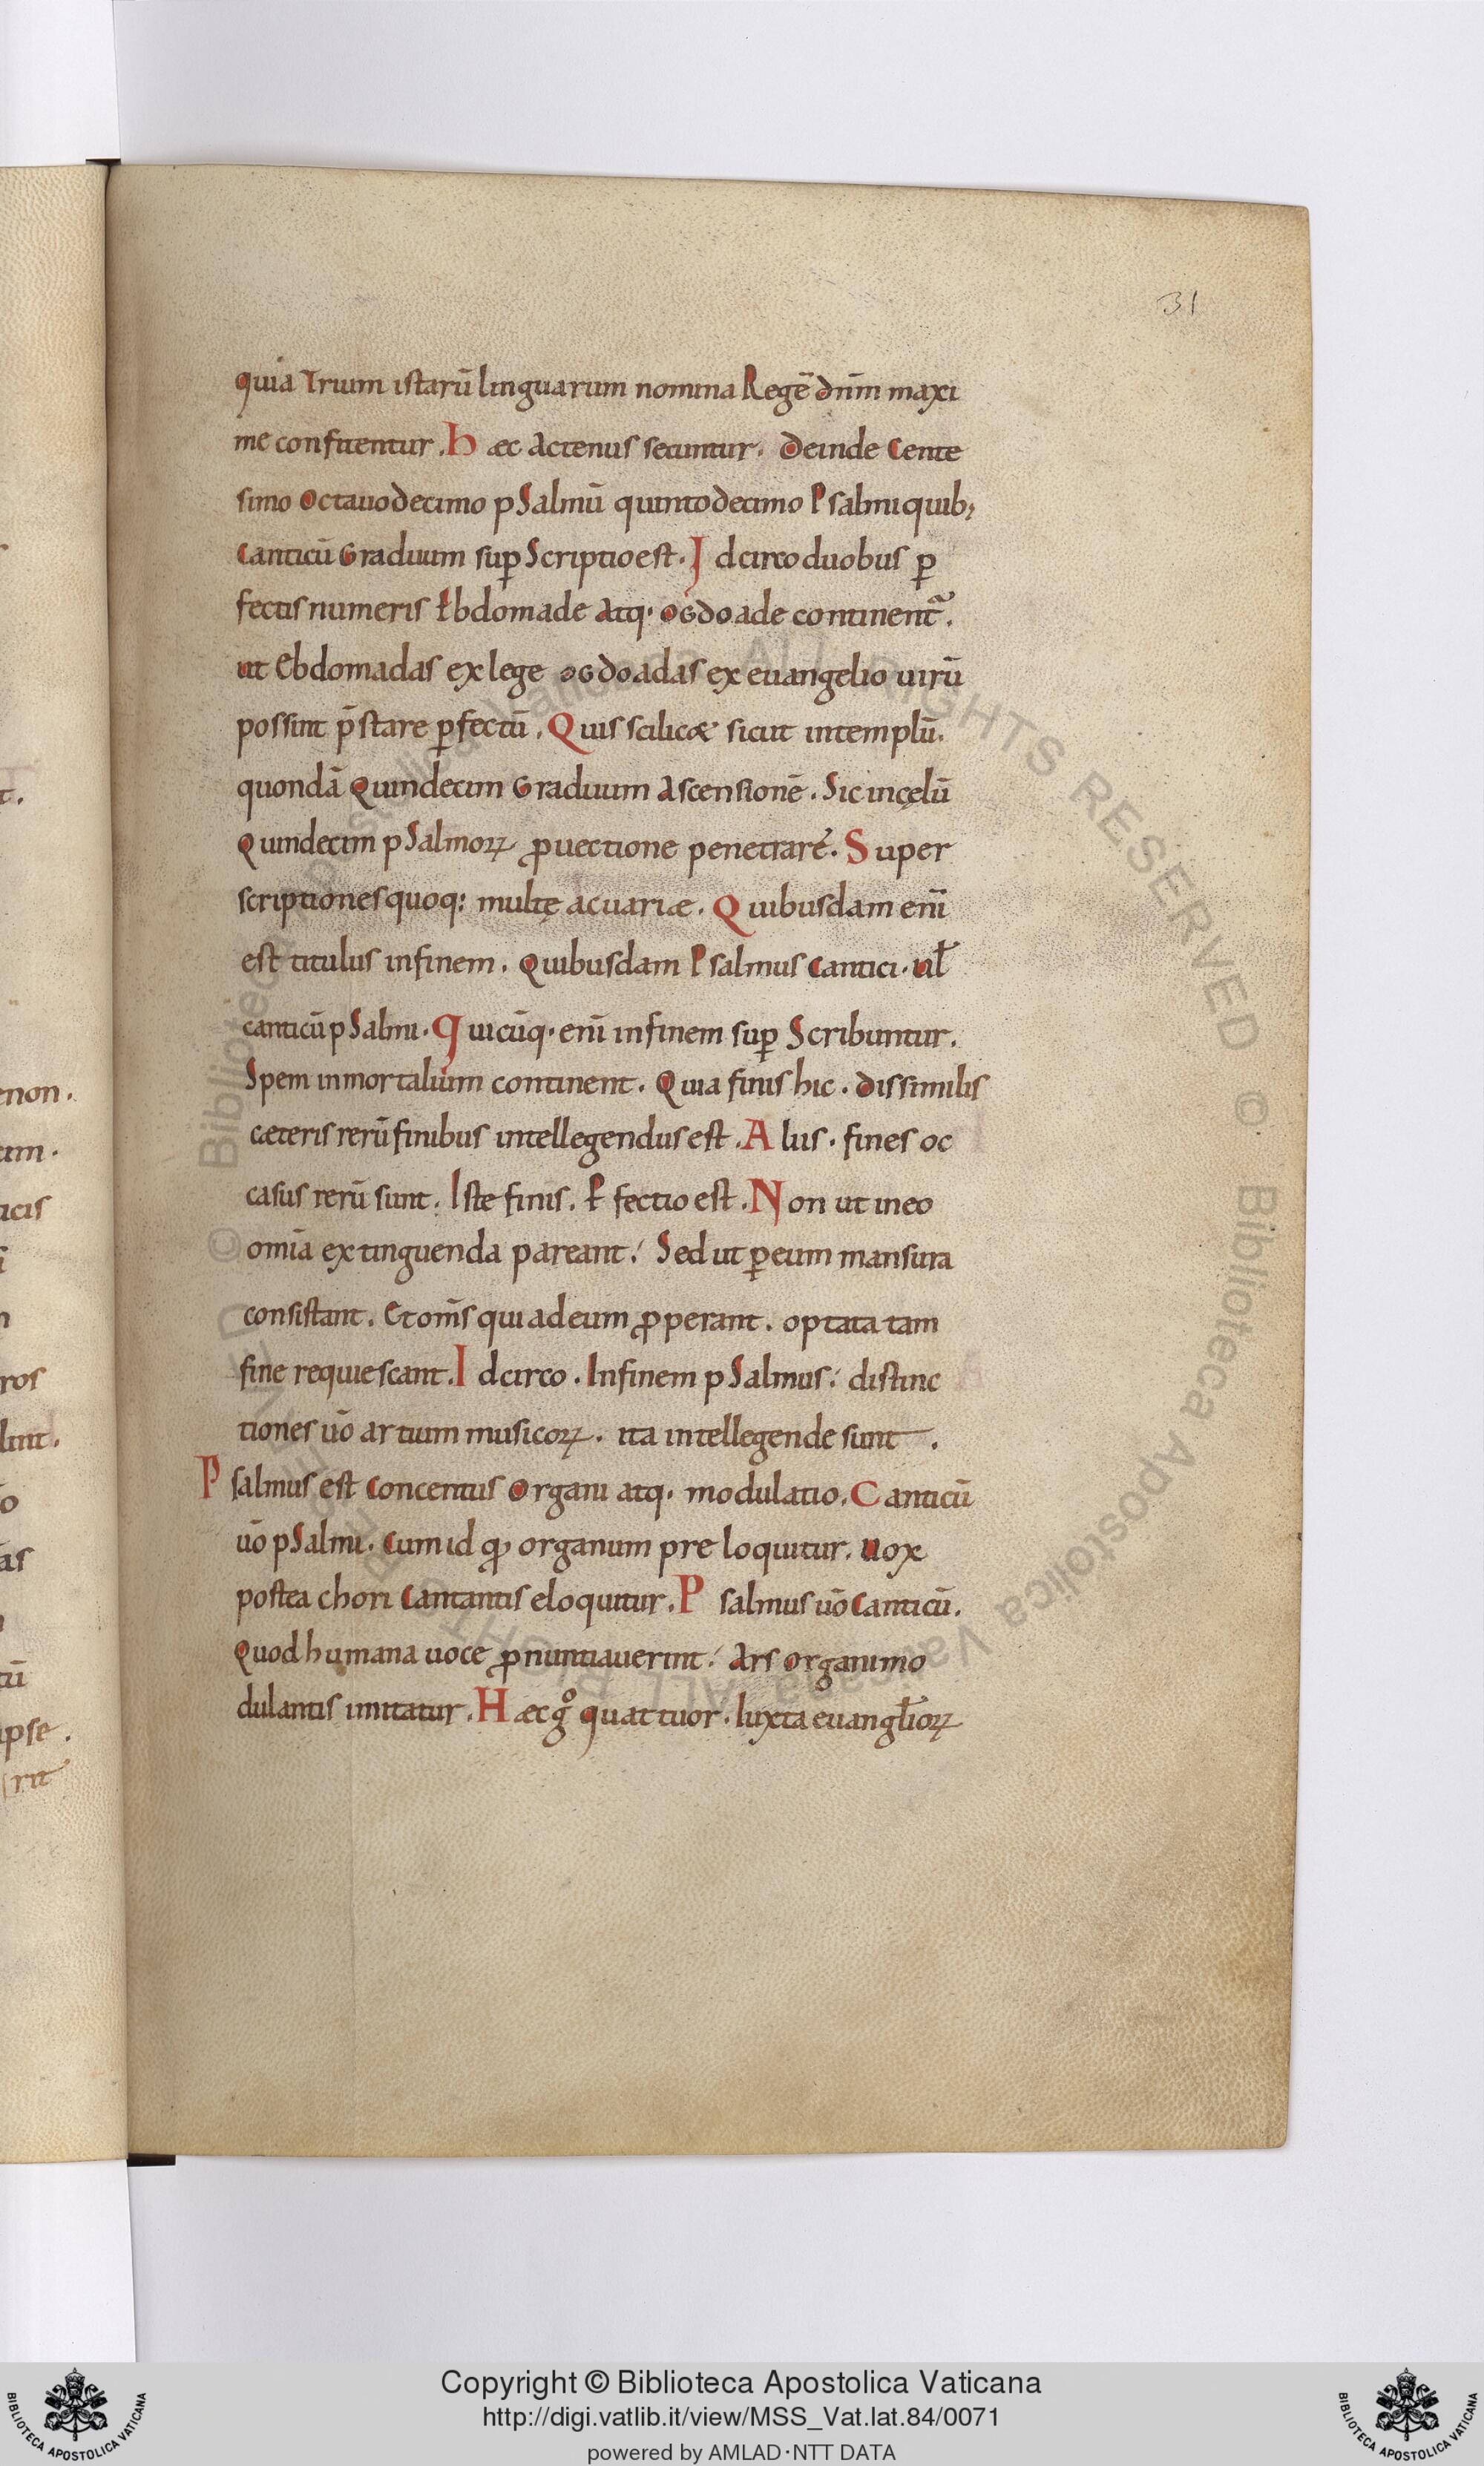 31
quia Trium istarū linguarum nomina Regē dn̄m maxi
me confitentur. Haec Actenus secuntur. Deinde Cente
simo Octauodecimo pSalmū quintodecimo Psalmi quib;
Canticū Graduum sup̱ Scriptio est. Idcirco duobus p̱
fectis numeris Ebdomade Atq· oGdoade continent᷑.
ut Ebdomadas ex lege oGdoadas ex euangelio uirū
possint p̄stare p̱fectū. Quis scilicet sicut in templū.
quondā Quindecim Graduum Ascensionē. Sic in cęlū
Quindecim pSalmoꝝ ꝓuectione penetraré. Super
scriptiones quoq: multę ac uariae. Quibusdam enī
est titulus in finem. Quibusdam Psalmus Cantici. Uł
canticū pSalmi. Quicūq· enī in finem sup̱ Scribuntur.
Spem inmortalium continent. Quia finis hic. dissimilis
cæteris rerū finibus intellegendus est. Alus. fines oc
casus rerū sunt. Iste finis. P̱fectio est. Non ut in eo
omīa extinguenda pareant. Sed ut p̱ eum mansura
consistant. Et om̄s qui ad eum ꝓperant. optata tam
fine requiescant. Idcirco. In finem pSalmus. distinc
tiones uō artium musicoꝝ. ita intellegende sunt.
Psalmus est Concentus Organi atq· modulatio. Canticū
uō pSalmi. Cum id qđ organum pre loquitur. Uox
postea chori Cantantis eloquitur. Psalmus uō Canticū.
Quod humana uoce ꝓnuntiauerint. Ars organi mo
dulantis imitatur. Haec gͦ quattuor. Iuxta euangłioꝝ
non.
ros
ipse.
© Biblioteca Apostolica Vaticana ALL RIGHTS RESERVED
© Biblioteca Apostolica Vaticana ALL RIGHTS RESERVED
Copyright © Biblioteca Apostolica Vaticana
http://digi.vatlib.it/view/MSS_Vat.lat.84/0071
powered by AMLAD·NTT DATA
BIBLIOTECA APOSTOLICA VATICANA
BIBLIOTECA APOSTOLICA VATICANA